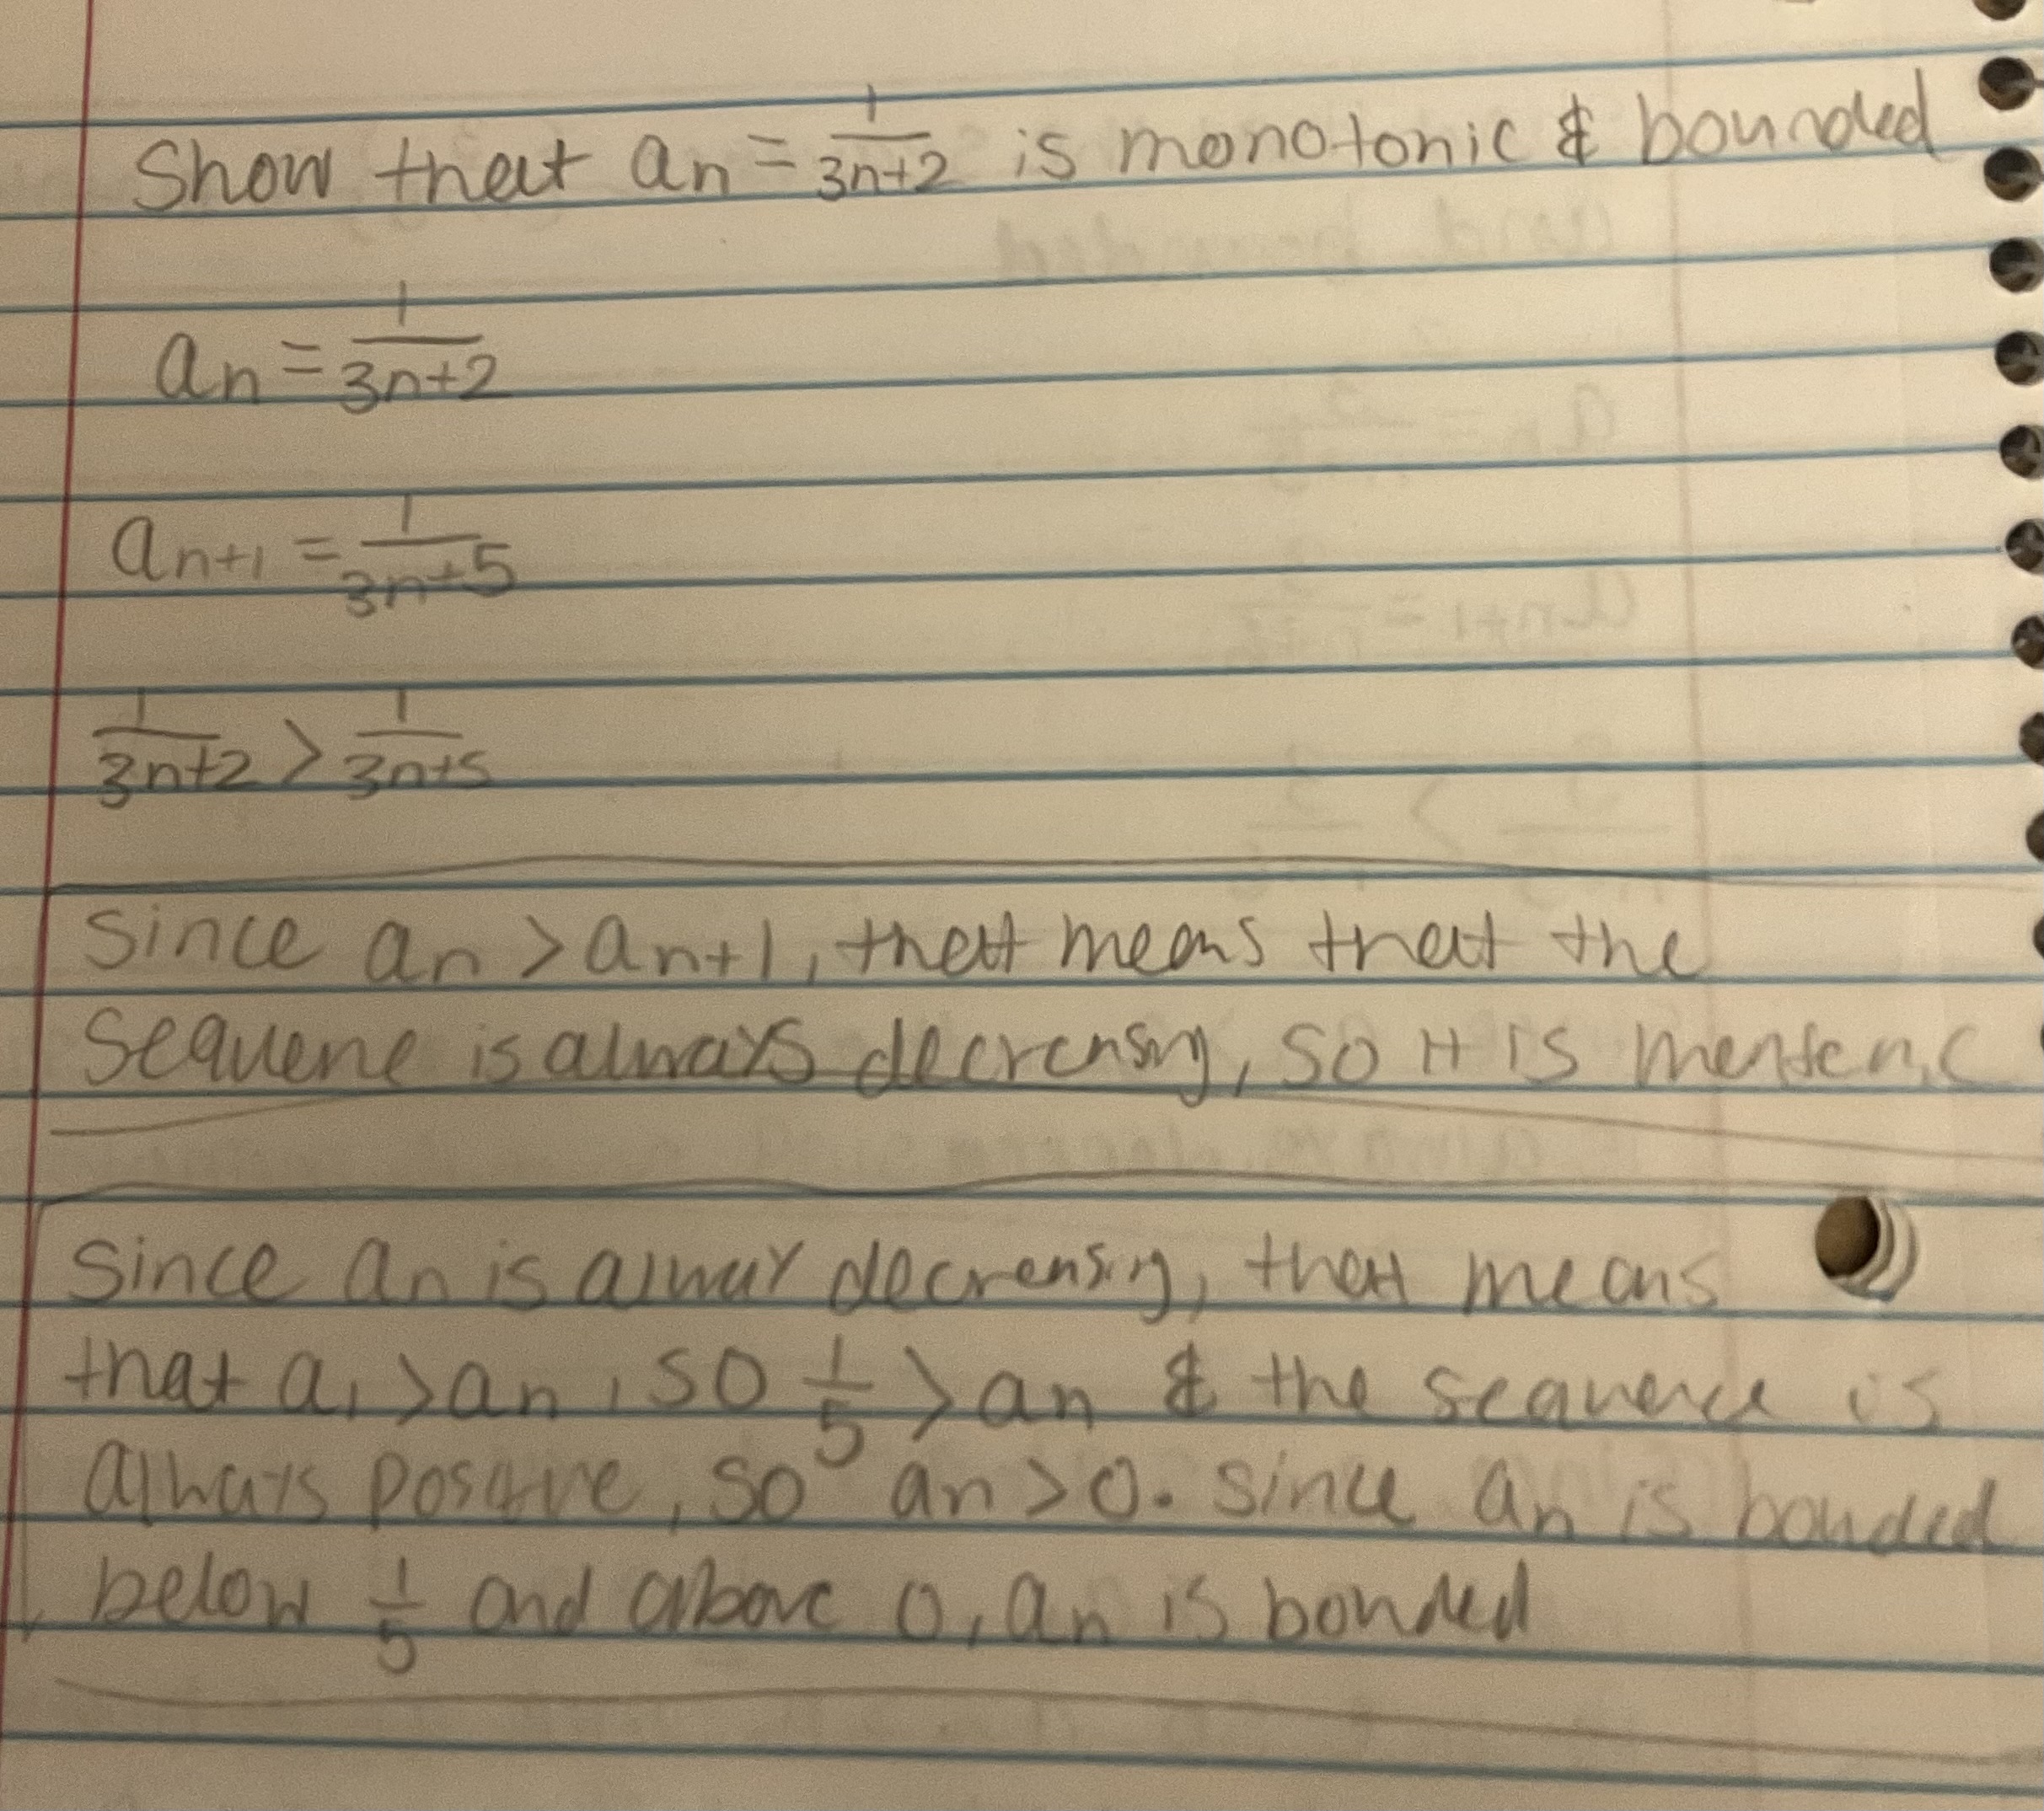 Show that an = 1/3n+2 is monotonic & bounded
an = 1/3n+2
an+1 = 1/3n+5
1/3n+2 > 1/3n+5
Since an > an+1, that means that the
Sequene is always decreasing, so it is
Since an is alway decreasing, that means
that a1 > an, so 1/5 > an & the sequence is
always positive, so an > 0. since an is bouded
below 1/5 and above 0, an is bonded